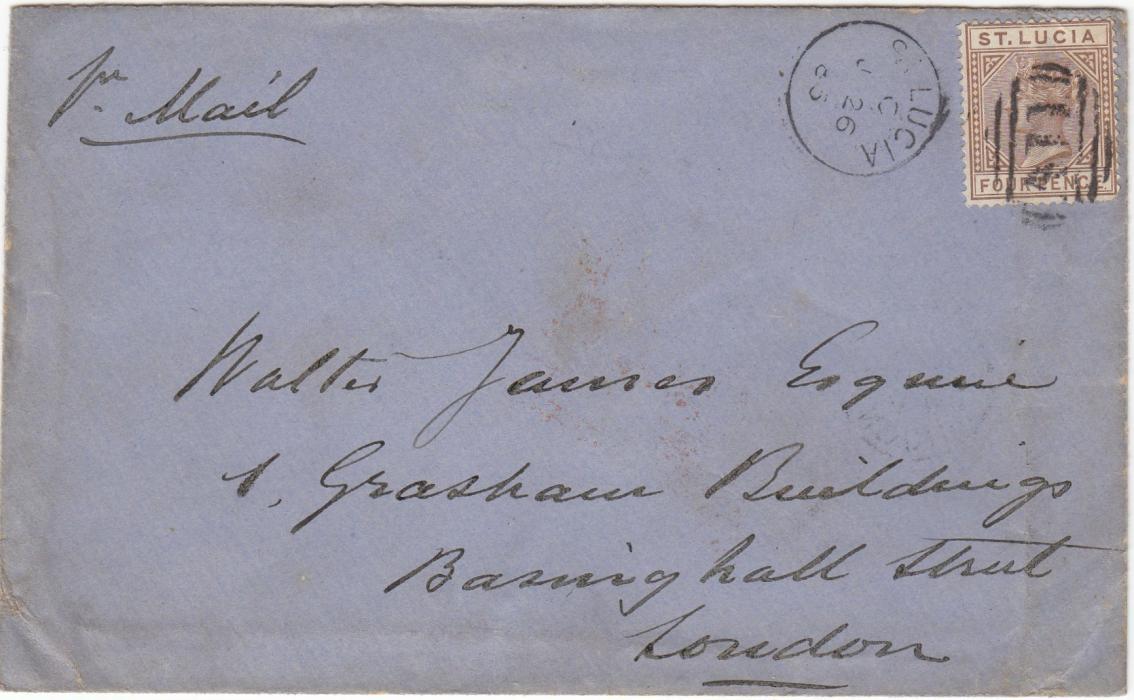 pr. Mail
ST. LUCIA
ST. LUCIA
OC 26
FOUR PENCE
Walter James Esquire
1, Grasham Buildings
Basinghall Street
London